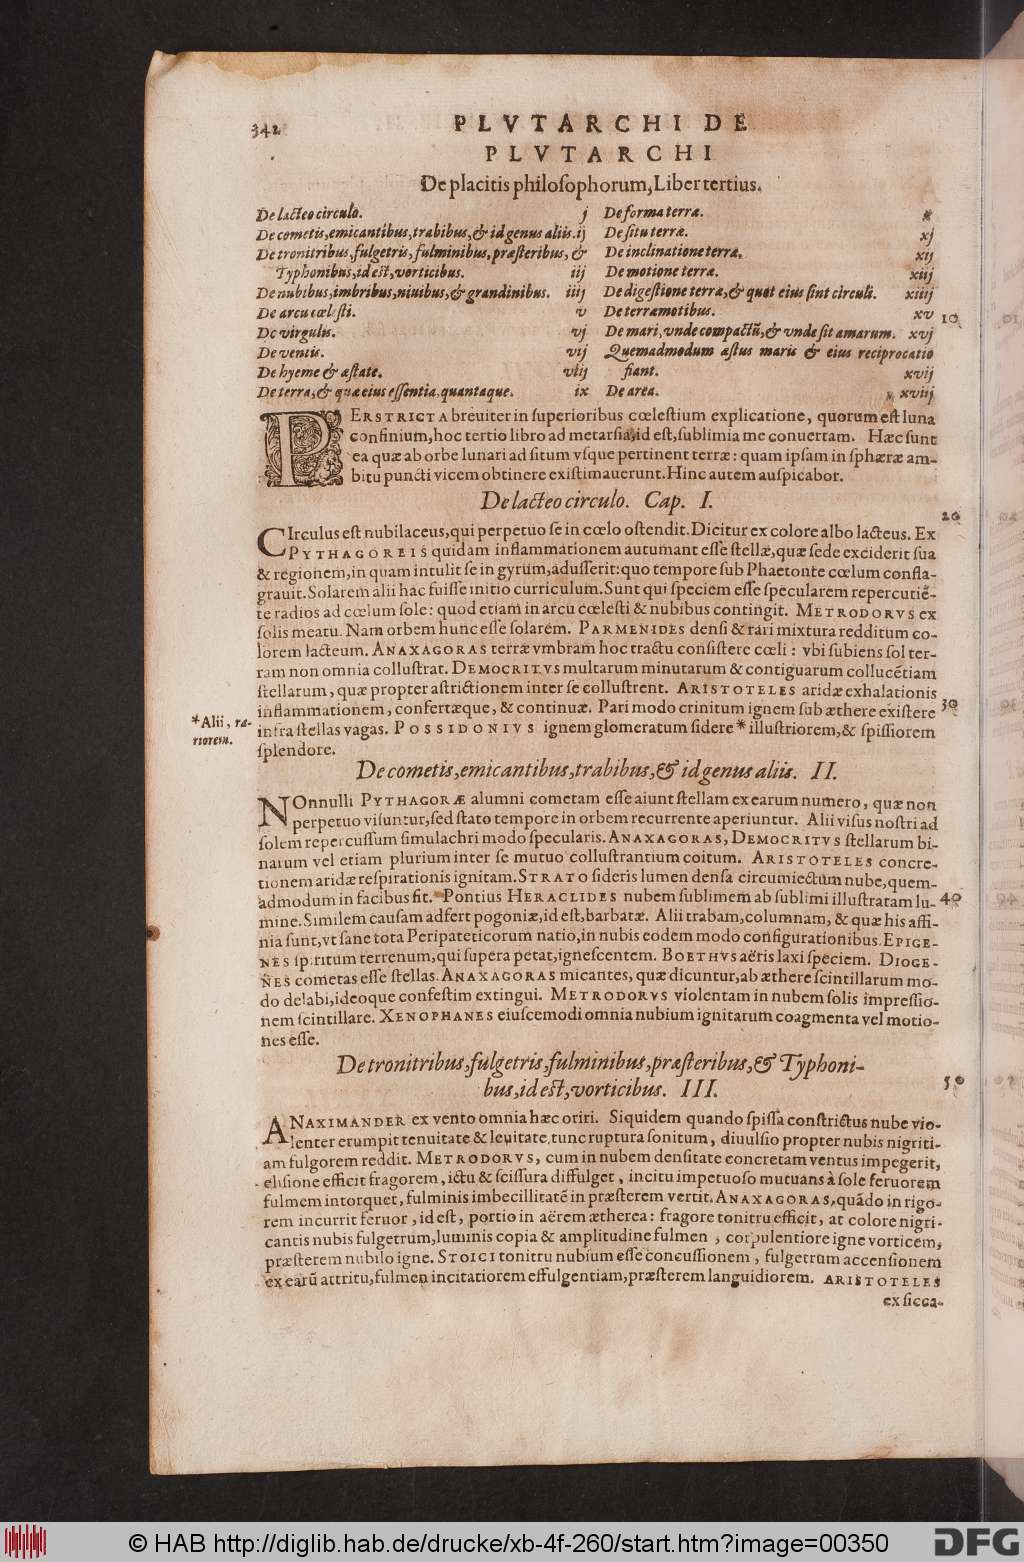 342
PLVTARCHI DE
PLVTARCHI
De placitis philoſophorum, Liber tertius.
De lacteo circulo. j
De cometis, emicantibus, trabibus, & id genus aliis. ij
De tronitribus, fulgetris, fulminibus, præſteribus, &
Typhonibus, id eſt, vorticibus. iij
De nubibus, imbribus, niuibus, & grandinibus. iiij
De arcu cœleſti. v
De virgulis. vj
De ventis. vij
De hyeme & æſtate. viij
De terra, & quæ eius eſſentia, quantaque. ix
De forma terræ. x
De ſitu terræ. xj
De inclinatione terræ. xij
De motione terræ. xiij
De digeſtione terræ, & quot eius ſint circuli. xiiij
De terræmotibus. xv
De mari, vnde compactũ, & vnde ſit amarum. xvj
Quemadmodum æſtus maris & eius reciprocatio
fiant. xvij
De area. xviij
10
PERSTRICTA breuiter in ſuperioribus cœleſtium explicatione, quorum eſt luna
confinium, hoc tertio libro ad metarſia, id eſt, ſublimia me conuertam. Hæc ſunt
ea quæ ab orbe lunari ad ſitum vſque pertinent terræ: quam ipſam in ſphæræ am-
bitu puncti vicem obtinere exiſtimauerunt. Hinc autem auſpicabor.
De lacteo circulo. Cap. I.
20
CIrculus eſt nubilaceus, qui perpetuo ſe in cœlo oſtendit. Dicitur ex colore albo lacteus. Ex
PYTHAGOREIS quidam inflammationem autumant eſſe ſtellæ, quæ ſede exciderit ſua
& regionem, in quam intulit ſe in gyrum, aduſſerit: quo tempore ſub Phaetonte cœlum confla-
grauit. Solarem alii hac fuiſſe initio curriculum. Sunt qui ſpeciem eſſe ſpecularem repercutiẽ-
te radios ad cœlum ſole: quod etiam in arcu cœleſti & nubibus contingit. METRODORVS ex
ſolis meatu. Nam orbem hunc eſſe ſolarem. PARMENIDES denſi & rari mixtura redditum co-
lorem lacteum. ANAXAGORAS terræ vmbram hoc tractu conſiſtere cœli: vbi ſubiens ſol ter-
ram non omnia colluſtrat. DEMOCRITVS multarum minutarum & contiguarum collucẽtiam
ſtellarum, quæ propter aſtrictionem inter ſe colluſtrent. ARISTOTELES aridæ exhalationis
inflammationem, confertæque, & continuæ. Pari modo crinitum ignem ſub æthere exiſtere 30
infra ſtellas vagas. POSSIDONIVS ignem glomeratum ſidere * illuſtriorem, & ſpiſſiorem
ſplendore.
*Alii, ra-
riorem.
De cometis, emicantibus, trabibus, & id genus aliis. II.
NOnnulli PYTHAGORÆ alumni cometam eſſe aiunt ſtellam ex earum numero, quæ non
perpetuo viſuntur, ſed ſtato tempore in orbem recurrente aperiuntur. Alii viſus noſtri ad
ſolem repercuſſum ſimulachri modo ſpecularis. ANAXAGORAS, DEMOCRITVS ſtellarum bi-
narum vel etiam plurium inter ſe mutuo colluſtrantium coitum. ARISTOTELES concre-
tionem aridæ reſpirationis ignitam. STRATO ſideris lumen denſa circumiectum nube, quem-
admodum in facibus fit. Pontius HERACLIDES nubem ſublimem ab ſublimi illuſtratam lu- 40
mine. Similem cauſam adfert pogoniæ, id eſt, barbatæ. Alii trabam, columnam, & quæ his affi-
nia ſunt, vt ſane tota Peripateticorum natio, in nubis eodem modo configurationibus. EPIGE-
NES ſpiritum terrenum, qui ſupera petat, igneſcentem. BOETHVS aëris laxi ſpeciem. DIOGE-
NES cometas eſſe ſtellas. ANAXAGORAS micantes, quæ dicuntur, ab æthere ſcintillarum mo-
do delabi, ideoque confeſtim extingui. METRODORVS violentam in nubem ſolis impreſſio-
nem ſcintillare. XENOPHANES eiuſcemodi omnia nubium ignitarum coagmenta vel motio-
nes eſſe.
De tronitribus, fulgetris, fulminibus, præſteribus, & Typhoni-
bus, id eſt, vorticibus. III.
50
ANAXIMANDER ex vento omnia hæc oriri. Siquidem quando ſpiſſa conſtrictus nube vio-
lenter erumpit tenuitate & leuitate, tunc ruptura ſonitum, diuulſio propter nubis nigriti-
am fulgorem reddit. METRODORVS, cum in nubem denſitate concretam ventus impegerit,
eliſione efficit fragorem, ictu & ſciſſura diffulget, incitu impetuoſo mutuans à ſole feruorem
fulmem intorquet, fulminis imbecillitatẽ in præſterem vertit. ANAXAGORAS, quãdo in rigo-
rem incurrit feruor, id eſt, portio in aërem ætherea: fragore tonitru efficit, at colore nigri-
cantis nubis fulgetrum, luminis copia & amplitudine fulmen, corpulentiore igne vorticem,
præſterem nubilo igne. STOICI tonitru nubium eſſe concuſſionem, fulgetrum accenſionem
ex earũ attritu, fulmen incitatiorem effulgentiam, præſterem languidiorem. ARISTOTELES
ex ſicca-
© HAB http://diglib.hab.de/drucke/xb-4f-260/start.htm?image=00350
DFG